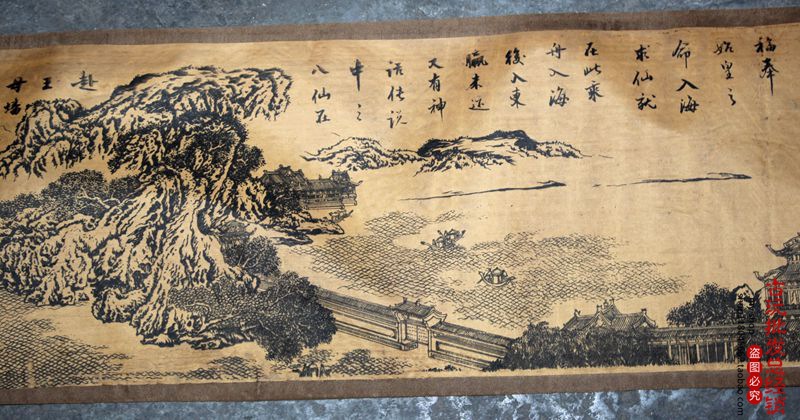 福奉
始皇之
命入海
求仙就
在此乘
舟入海
後入東
瀛未还
又有神
话传说
中之
八仙在
赴
王
母
盗图必究